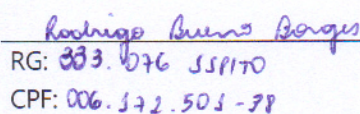 Rodrigo Bueno Borges
RG: 333.076 SSP/TO
CPF: 006.172.501-38